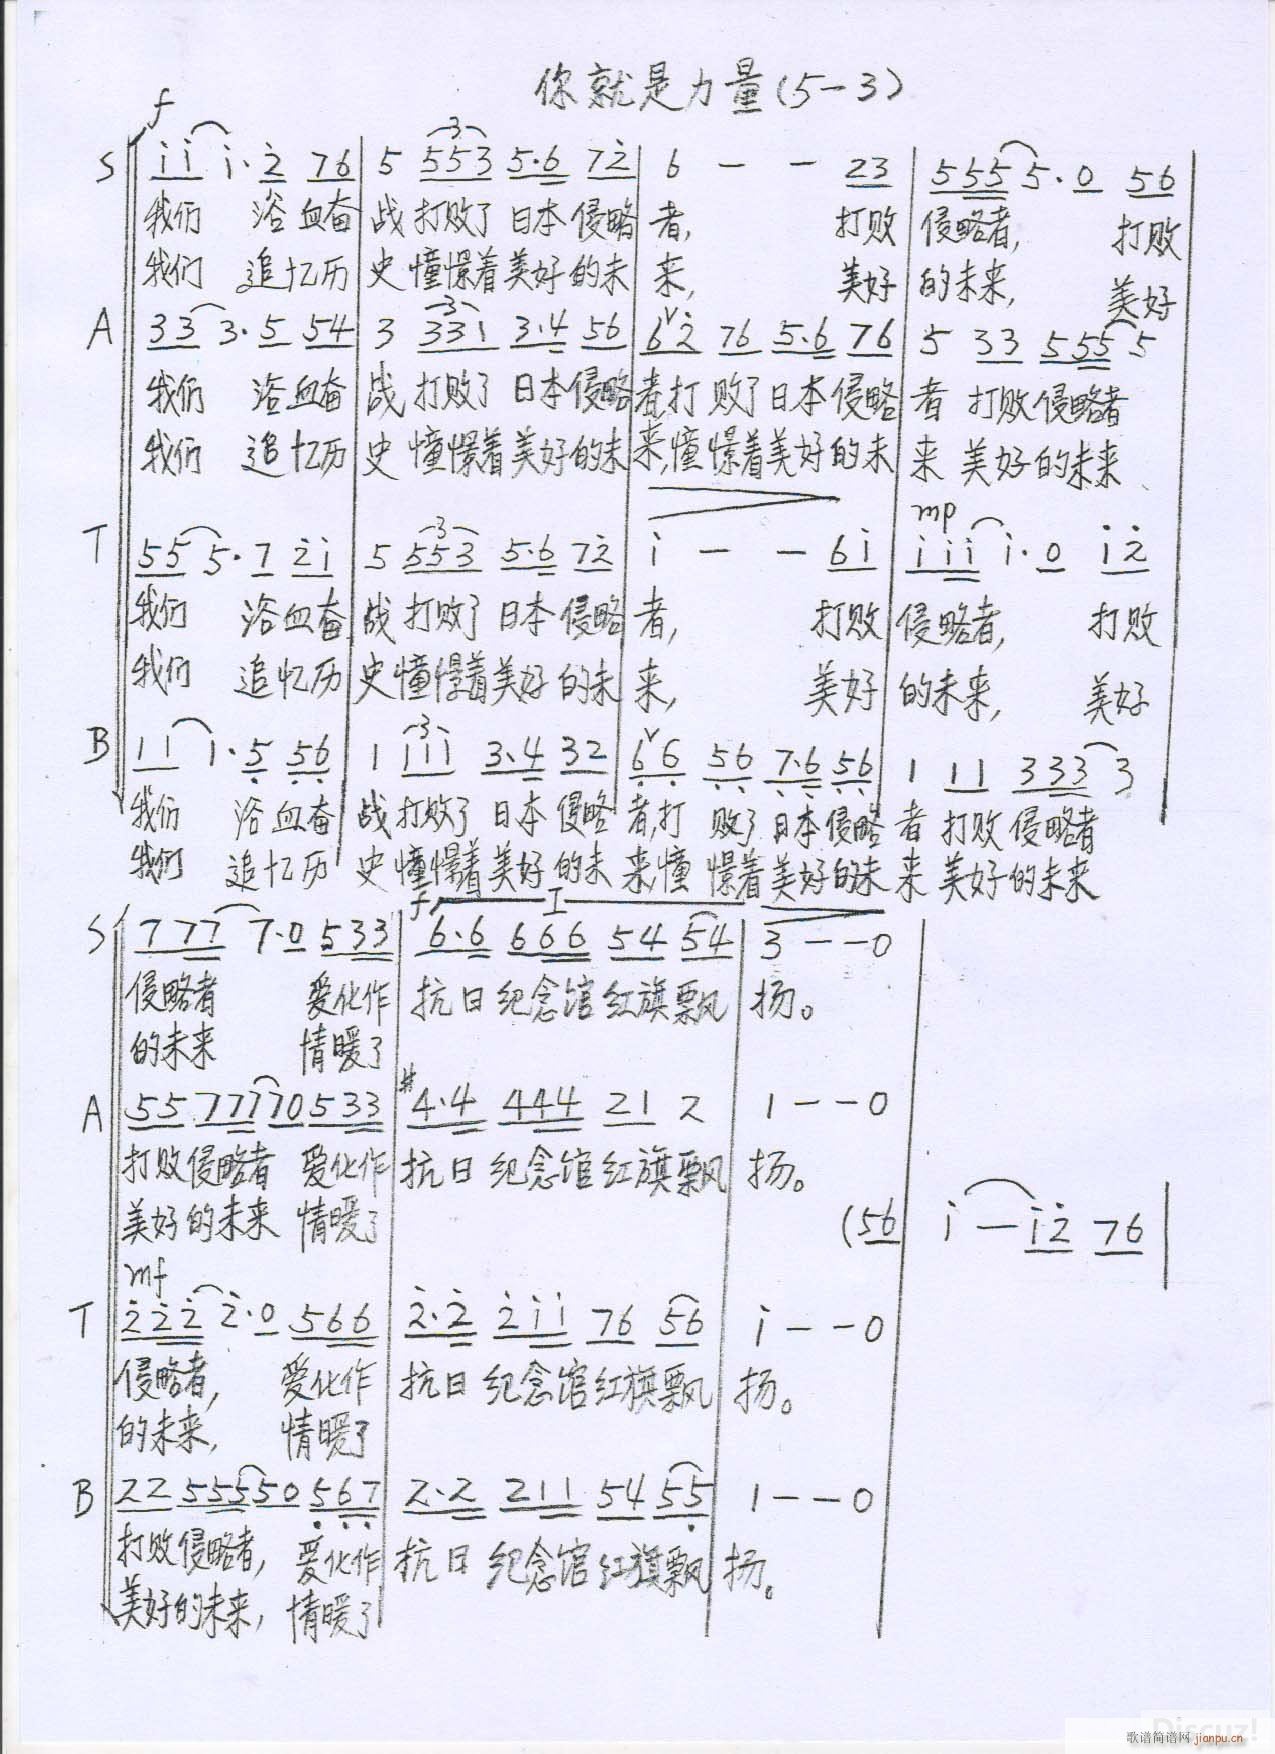 你就是力量(5-3)
f
S i i i· 2 7 6 | 5 5 5 3 5·6 7 2 | 6 - - 2 3 | 5 5 5 5·0 5 6
我们 浴血奋 战打败了日本侵略 者, 打败 侵略者, 打败
我们 追忆历 史憧憬着美好的未 来, 美好 的未来, 美好
A 3 3 3·5 5 4 | 3 3 3 1 3·4 5 6 | 6 2 7 6 5·6 7 6 | 5 3 3 5 5 5 5
我们 浴血奋 战打败了日本侵略 者,打败了日本侵略 者 打败侵略者
我们 追忆历 史憧憬着美好的未 来,憧憬着美好的未 来 美好的未来
mp
T 5 5 5·7 2 i | 5 5 5 3 5·6 7 2 | i - - 6 i | i i i i·0 i 2
我们 浴血奋 战打败了日本侵略 者, 打败 侵略者, 打败
我们 追忆历 史憧憬着美好的未 来, 美好 的未来, 美好
B 1 1 1·5 5 6 | 1 1 1 1 3·4 3 2 | 6 6 5 6 7·6 5 6 | 1 1 1 3 3 3 3
我们 浴血奋 战打败了日本侵略 者,打败了日本侵略 者 打败侵略者
我们 追忆历 史憧憬着美好的未 来,憧憬着美好的未来 美好的未来
f I
S 7 7 7 7·0 5 3 3 | 6·6 6 6 6 5 4 5 4 | 3 - - 0
侵略者 爱化作 抗日纪念馆红旗飘 扬。
的未来 情暖了
A 5 5 7 7 7 7 0 5 3 3 | #4·4 4 4 4 2 1 2 | 1 - - 0
打败侵略者 爱化作 抗日纪念馆红旗飘 扬。
美好的未来 情暖了
(5 6 i - i 2 7 6 |
mf
T 2 2 2 2·0 5 6 6 | 2·2 2 i i 7 6 5 6 | i - - 0
侵略者, 爱化作 抗日纪念馆红旗飘 扬。
的未来, 情暖了
B 2 2 5 5 5 5 0 5 6 7 | 2·2 2 1 1 5 4 5 5 | 1 - - 0
打败侵略者, 爱化作 抗日纪念馆红旗飘 扬。
美好的未来, 情暖了
Discuz!
歌谱简谱网 jianpu.cn